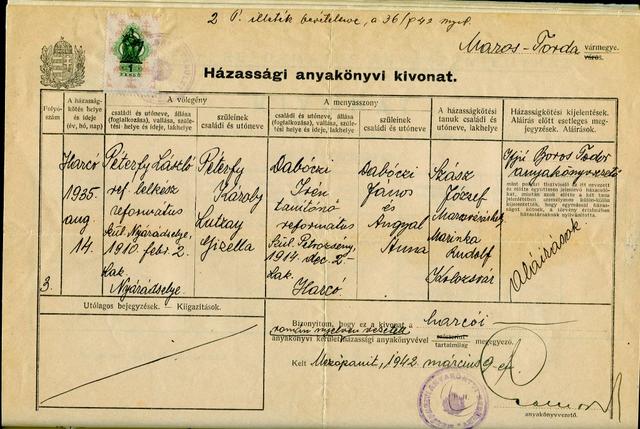 2 P. illeték bevételezve, a 36/942 nyil.
Maros-Torda vármegye.
város.
1
PENGŐ
Házassági anyakönyvi kivonat.
Folyó-
szám
A házasság-
kötés helye
és ideje
(év, hó, nap)
A vőlegény
családi és utóneve, állása
(foglalkozása), vallása, szüle-
tési helye és ideje, lakhelye
szüleinek
családi és utóneve
A menyasszony
családi és utóneve, állása
(foglalkozása), vallása, szüle-
tési helye és ideje, lakhelye
szüleinek
családi és utóneve
A házasságkötési
tanuk családi és
utóneve, lakhelye
Házasságkötési kijelentések.
Aláírás előtt esetleges meg-
jegyzések. Aláírások.
3.
Harcó
1935.
aug.
14.
Péterfy László
ref. lelkész
református
szül. Nyárádselye,
1910. febr. 2.
Lak.
Nyárádselye
Péterfy
Károly
Lutzay
Gizella
Dabóczi
Irén
tanítónő
református
Szül. Petrozsény,
1914. dec. 2.
Lak.
Harcó
Dabóczi
János
és
Angyal
Anna
Szász
József
Marosvásárhely
Marinka
Rudolf
Kolozsvár
Ifjú Boros Fodor
anyakönyvvezető
Aláírások
Utólagos bejegyzések. — Kiigazítások.
Bizonyítom, hogy ez a kivonat a harcói
román nyelven vezetett
anyakönyvi kerület házassági anyakönyvével tartalmilag megegyező.
Kelt Mezőpanit, 1942. március 9-én
anyakönyvvezető.